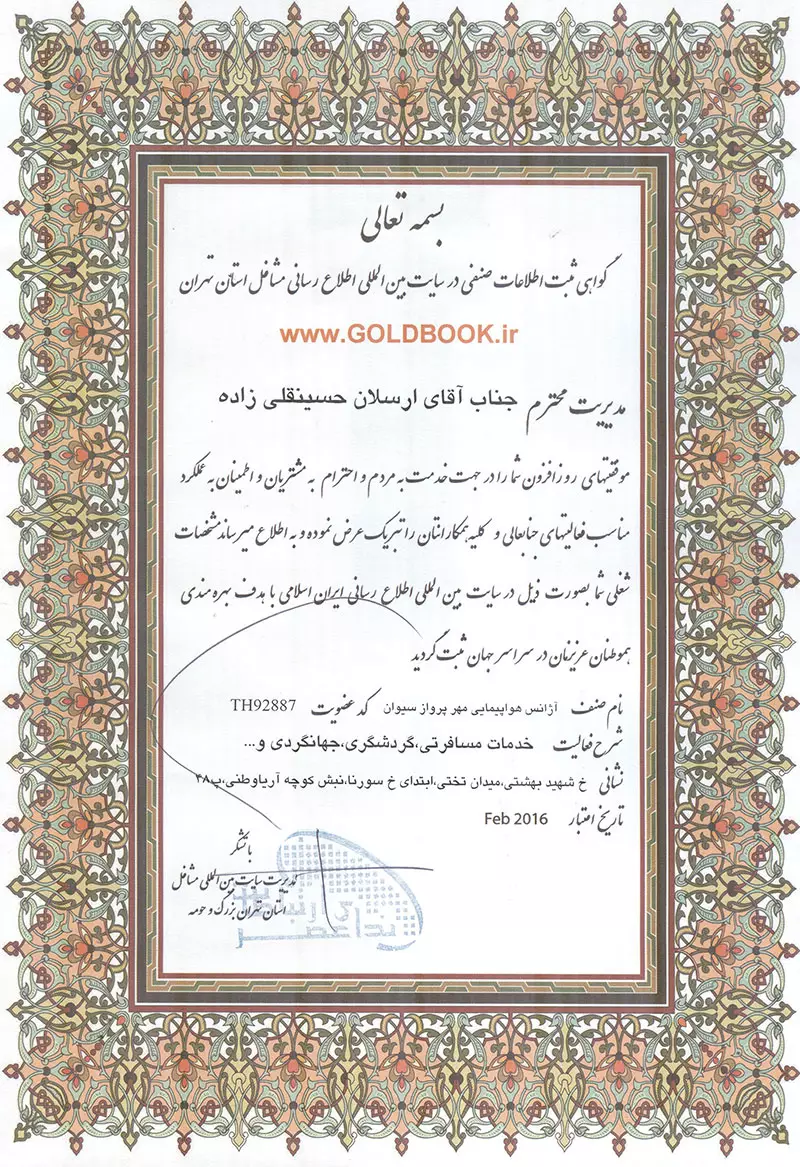 بسمه تعالی
گواهی ثبت اطلاعات صنفی در سایت بین المللی اطلاع رسانی مشاغل استان تهران
www.GOLDBOOK.ir
مدیریت محترم جناب آقای ارسلان حسینقلی زاده
موفقیتهای روزافزون شما را در جهت خدمت به مردم و احترام به مشتریان و اطمینان به عملکرد
مناسب فعالیتهای جنابعالی و کلیه همکارانتان را تبریک عرض نموده و به اطلاع میرساند مشخصات
شغلی شما بصورت ذیل در سایت بین المللی اطلاع رسانی ایران اسلامی با هدف بهره مندی
هموطنان عزیزمان در سراسر جهان ثبت گردید
نام صنف آژانس هواپیمایی مهر پرواز سیوان کد عضویت TH92887
شرح فعالیت خدمات مسافرتی،گردشگری،جهانگردی و...
نشانی خ شهید بهشتی،میدان تختی،ابتدای خ سورنا،نبش کوچه آریاوطنی،پ۴۸
تاریخ اعتبار Feb 2016
با تشکر
مدیریت سایت بین المللی مشاغل
استان تهران بزرگ و حومه